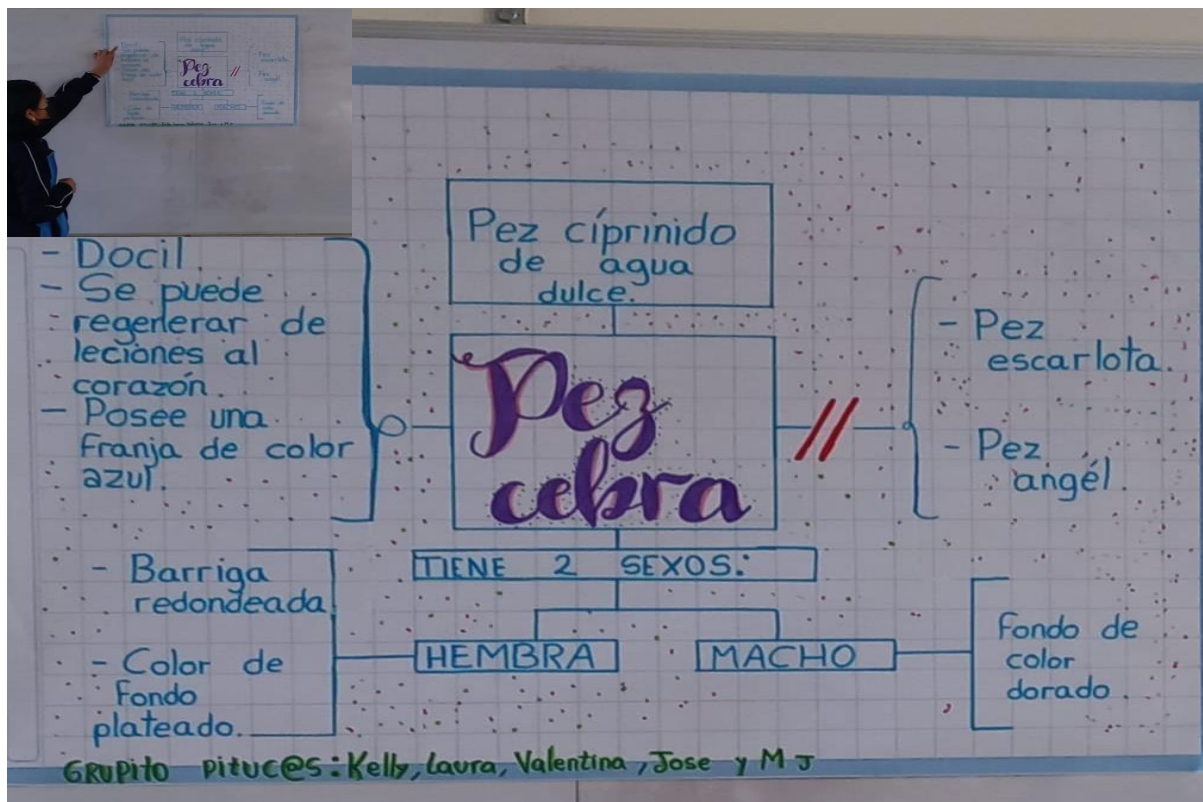 Pez cíprinido
de agua
dulce.
- Docil.
- Se puede
regenerar de
leciones al
corazón.
- Posee una
franja de color
azul.
Pez
cebra
//
- Pez
escarlota.
- Pez
angél.
TIENE 2 SEXOS:
HEMBRA
MACHO
- Barriga
redondeada
- Color de
fondo
plateado.
Fondo de
color
dorado.
GRUPito pituc@s: Kelly, Laura, Valentina, Jose y M J